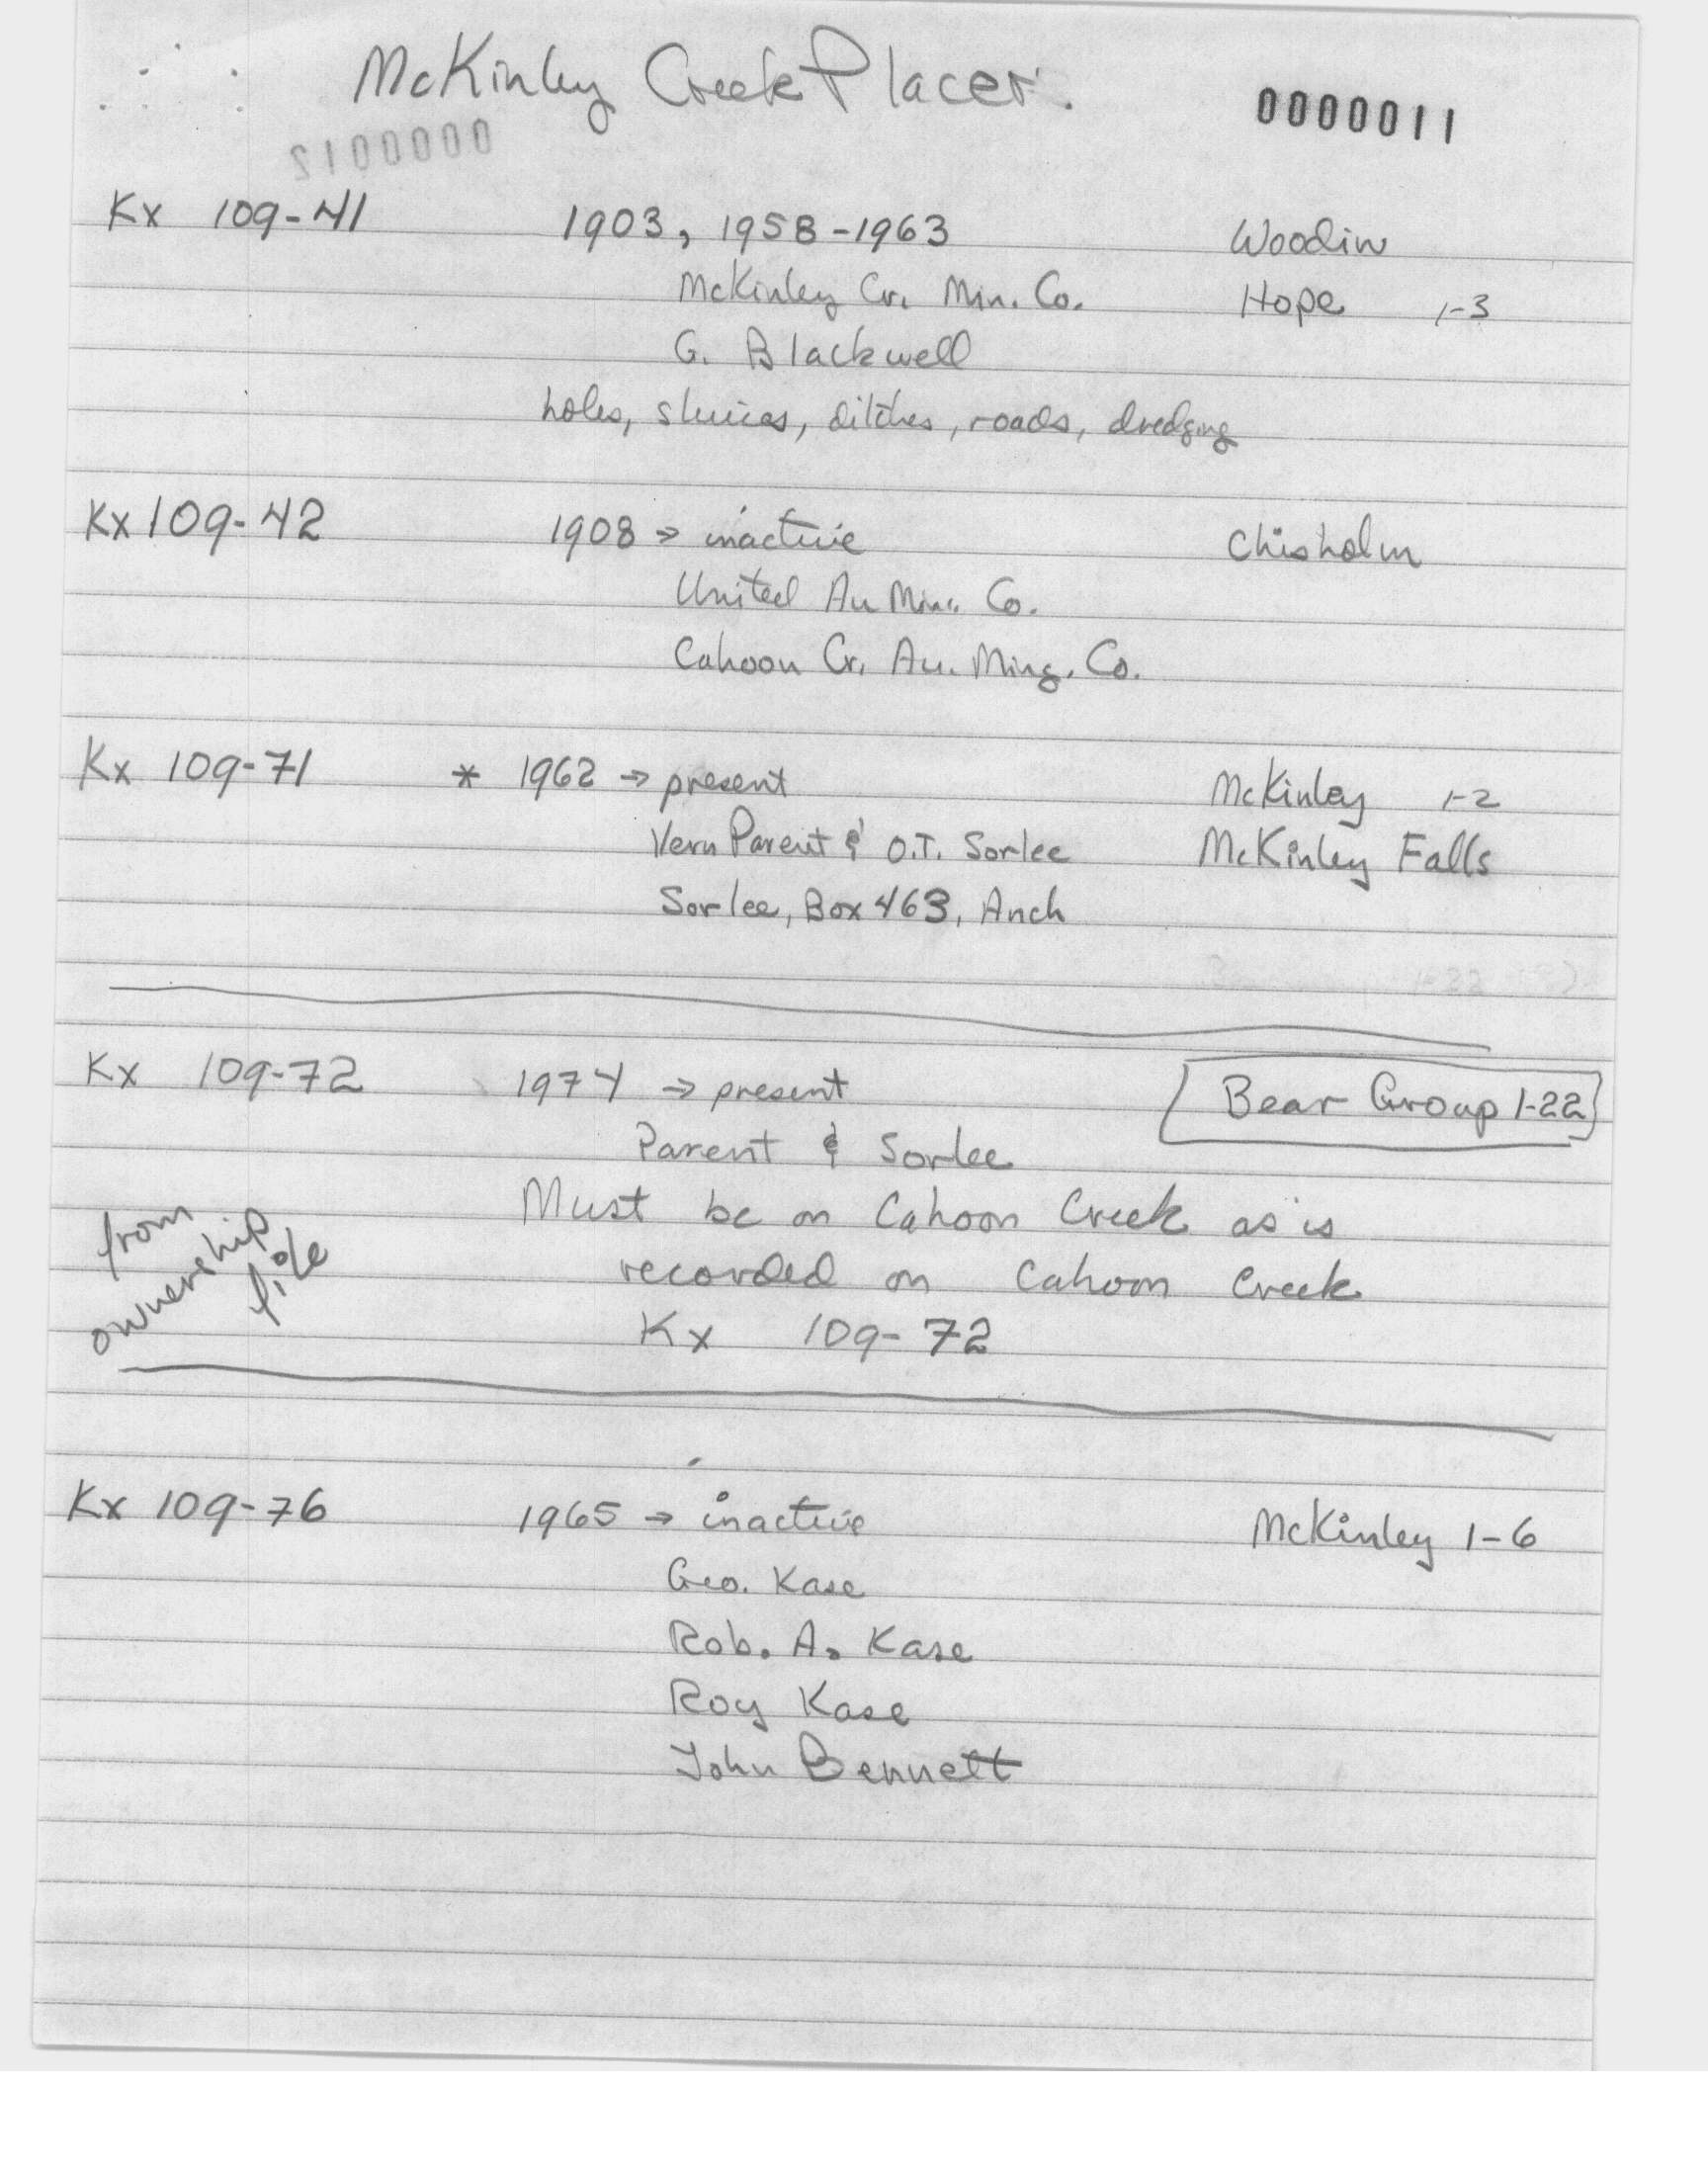 McKinley Creek Placer.
0000011
0000012
Kx 109-41 1903, 1958-1963 Woodin
McKinley Cr. Min. Co. Hope 1-3
G. Blackwell
holes, sluices, ditches, roads, dredging
Kx 109-42 1908 → inactive Chisholm
United Au Min. Co.
Cahoon Cr. Au. Ming. Co.
Kx 109-71 * 1962 → present McKinley 1-2
Vern Parent & O.T. Sorlee McKinley Falls
Sorlee, Box 463, Anch
Kx 109-72 1974 → present Bear Group 1-22
Parent & Sorlee
Must be on Cahoon Creek as is
recorded on Cahoon Creek
Kx 109-72
from
ownership
file
Kx 109-76 1965 → inactive McKinley 1-6
Geo. Kase
Rob. A. Kase
Roy Kase
John Bennett